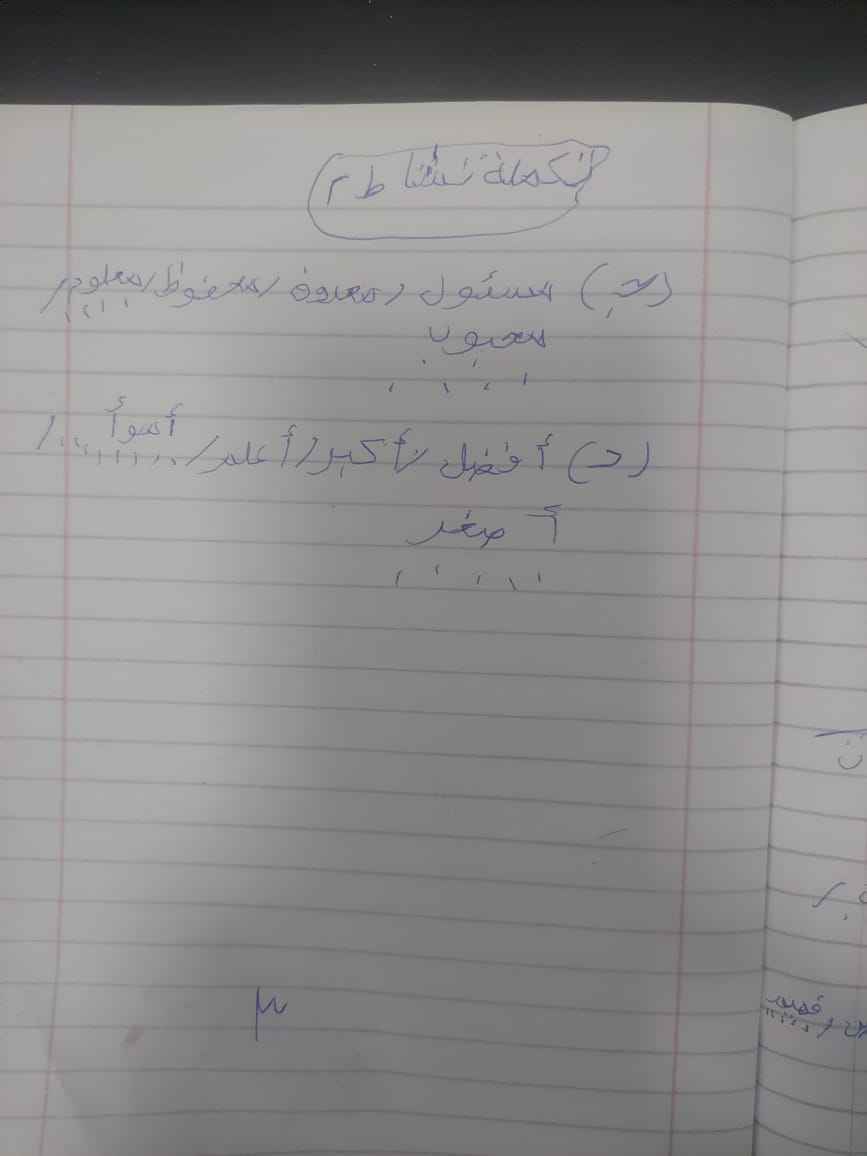 تكملة نشاط ٢
(ج) مسئول / معدود / محفوظ / معلوم /
محبوب
.....
(د) أفضل / أكبر / أعلم / أسوأ ...... /
أصغر
.....
٣